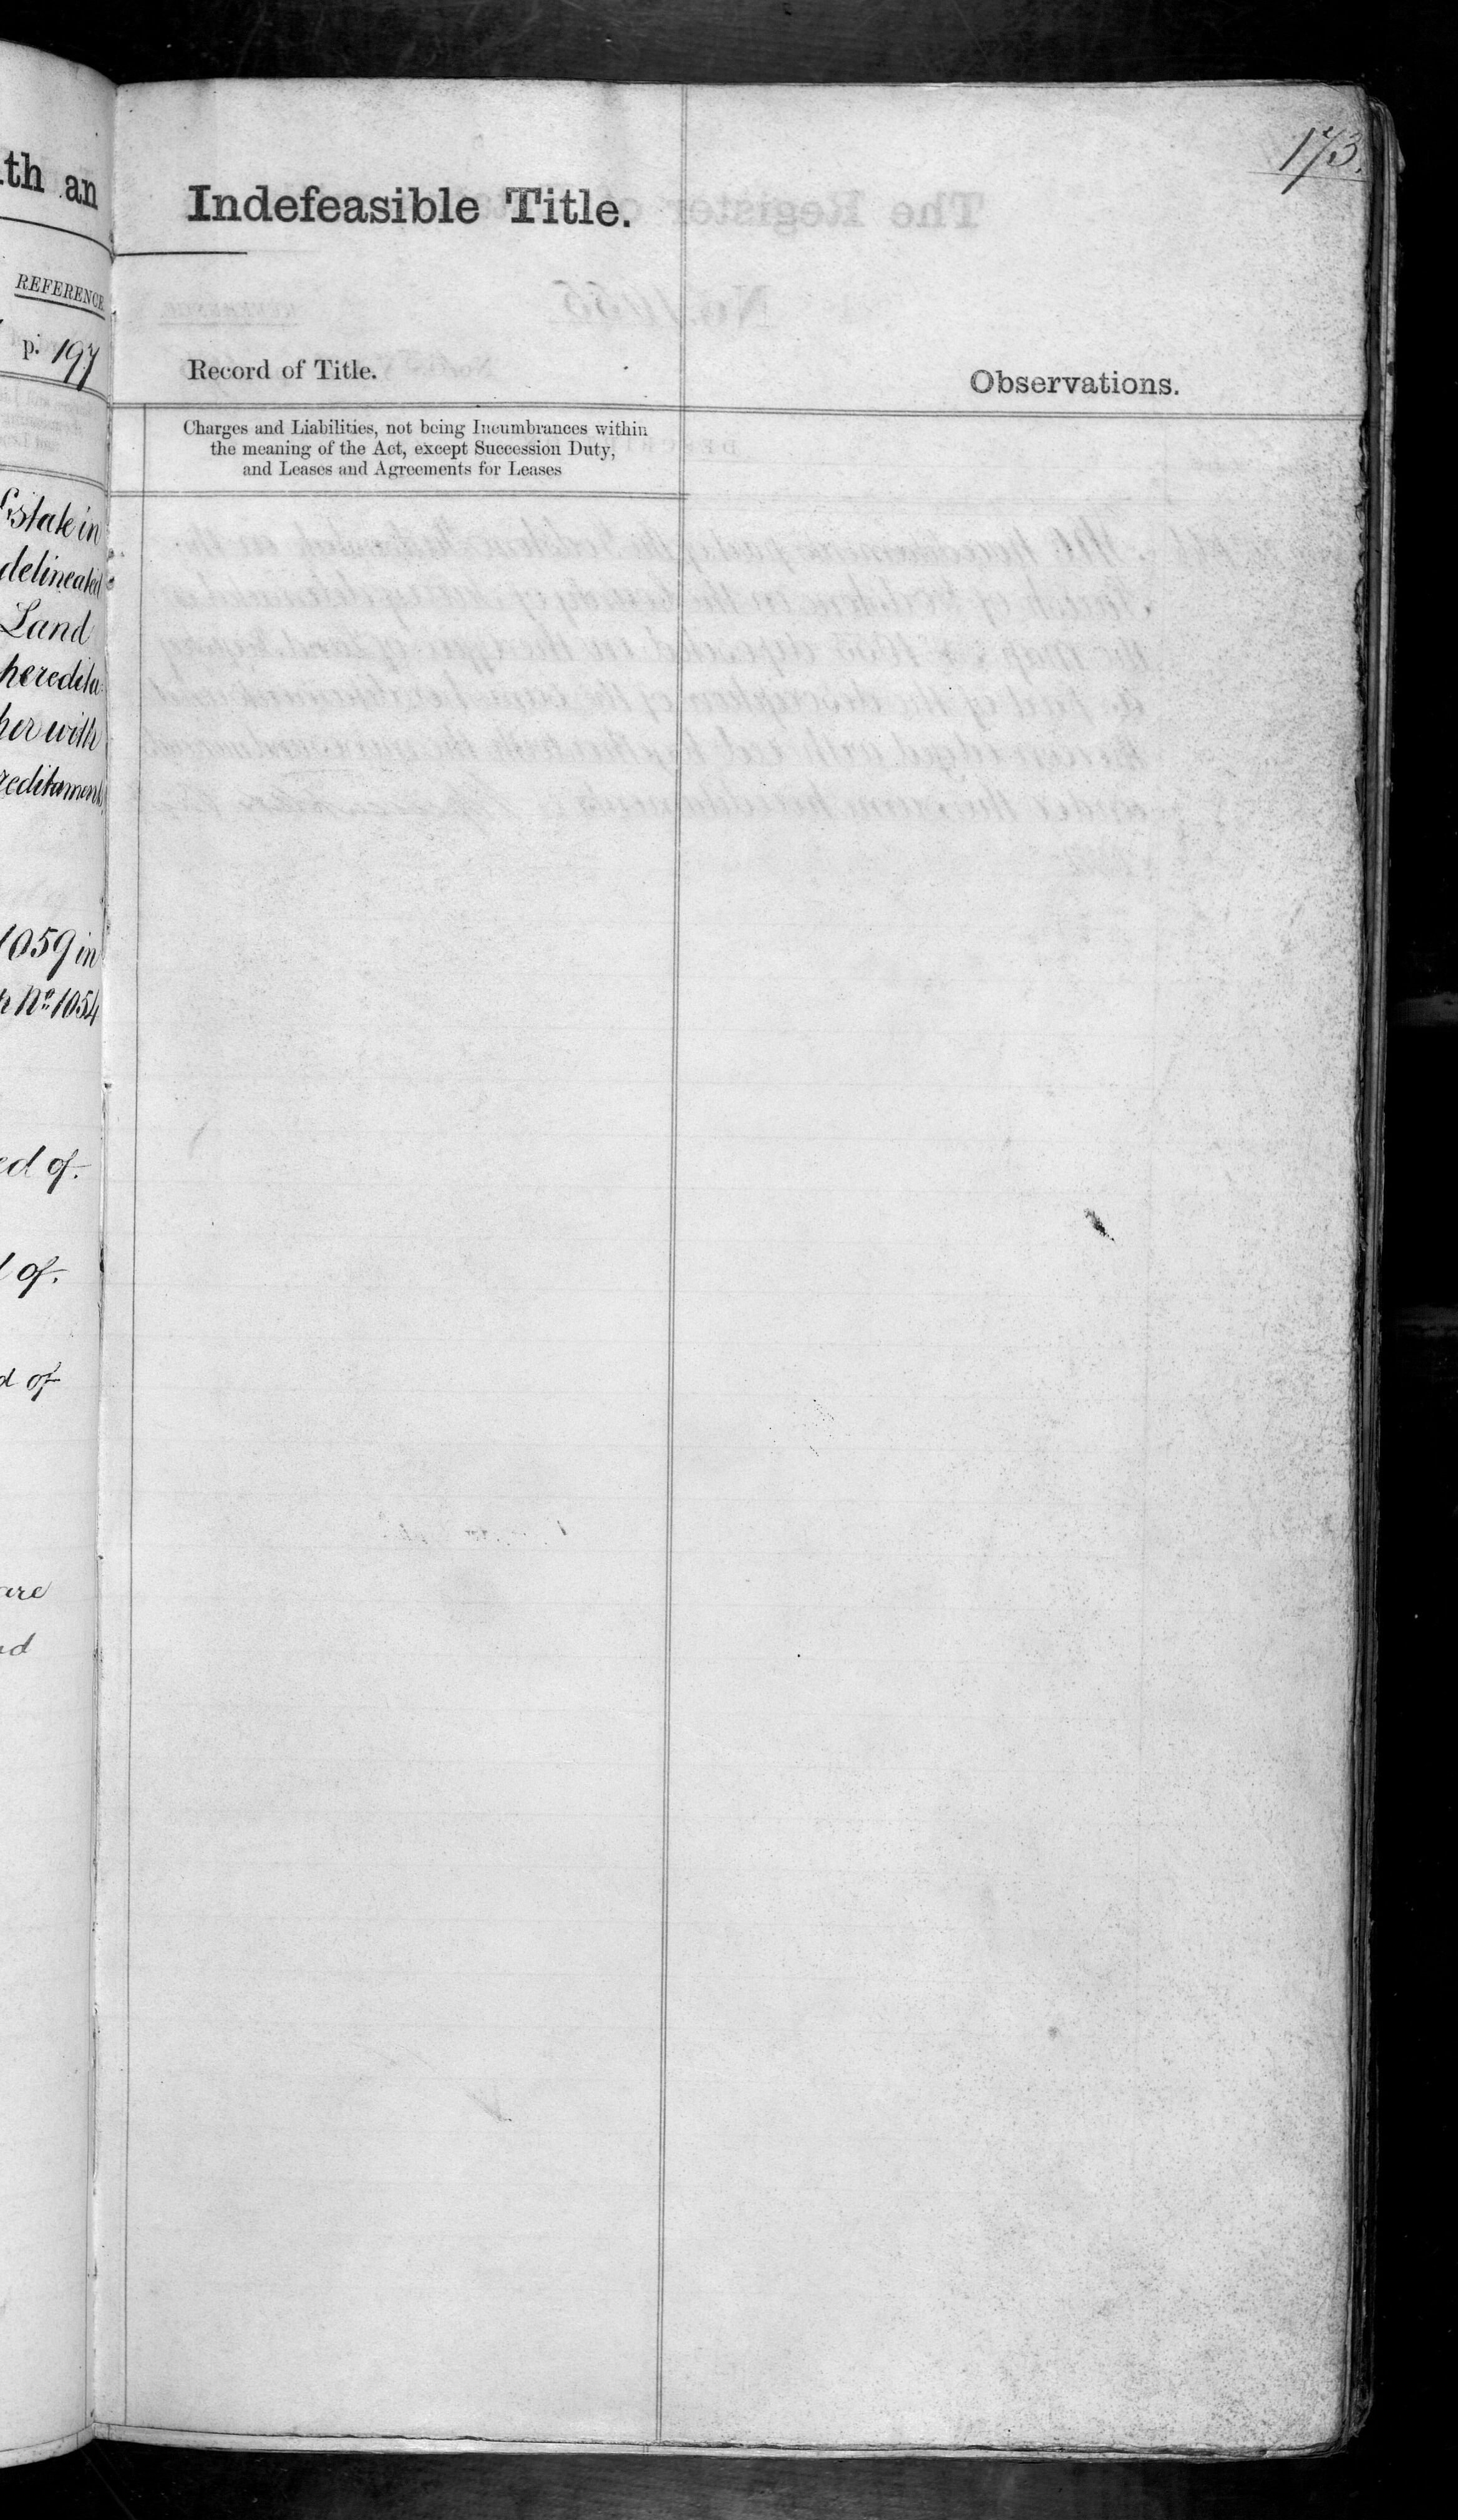 th an
REFERENCE
p. 197
Estate in
delineated
Land
heredita-
her with
reditament
1059 in
h No. 1054
ed of.
d of.
d of
are
nd
173.
Indefeasible Title.
Record of Title.
Observations.
Charges and Liabilities, not being Incumbrances within
the meaning of the Act, except Succession Duty,
and Leases and Agreements for Leases